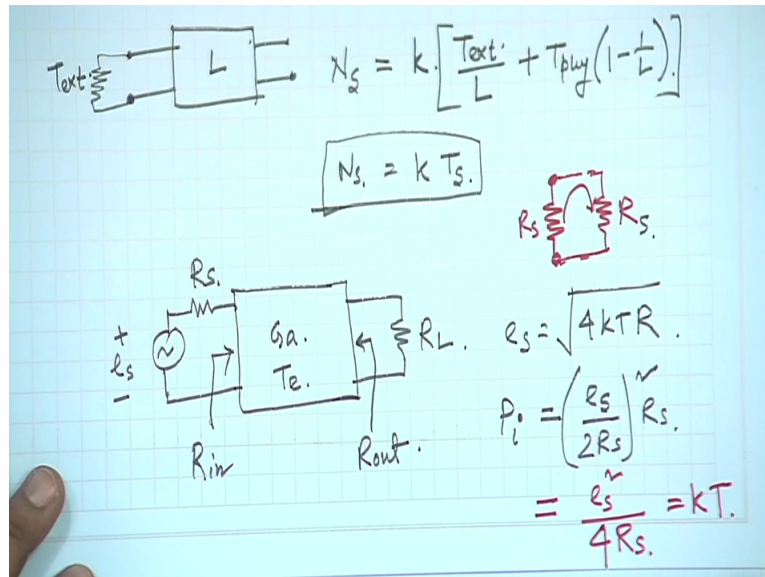 Text.
L
N_s = k. [Text./L + Tphy (1 - 1/L).]
N_s. = k T_s.
Rs
Rs.
Rs.
+
es
-
Ga.
Te.
RL.
Rin
Rout.
es = √4kTR.
Pi = (es/2Rs)² Rs.
= es²/4Rs. = kT.